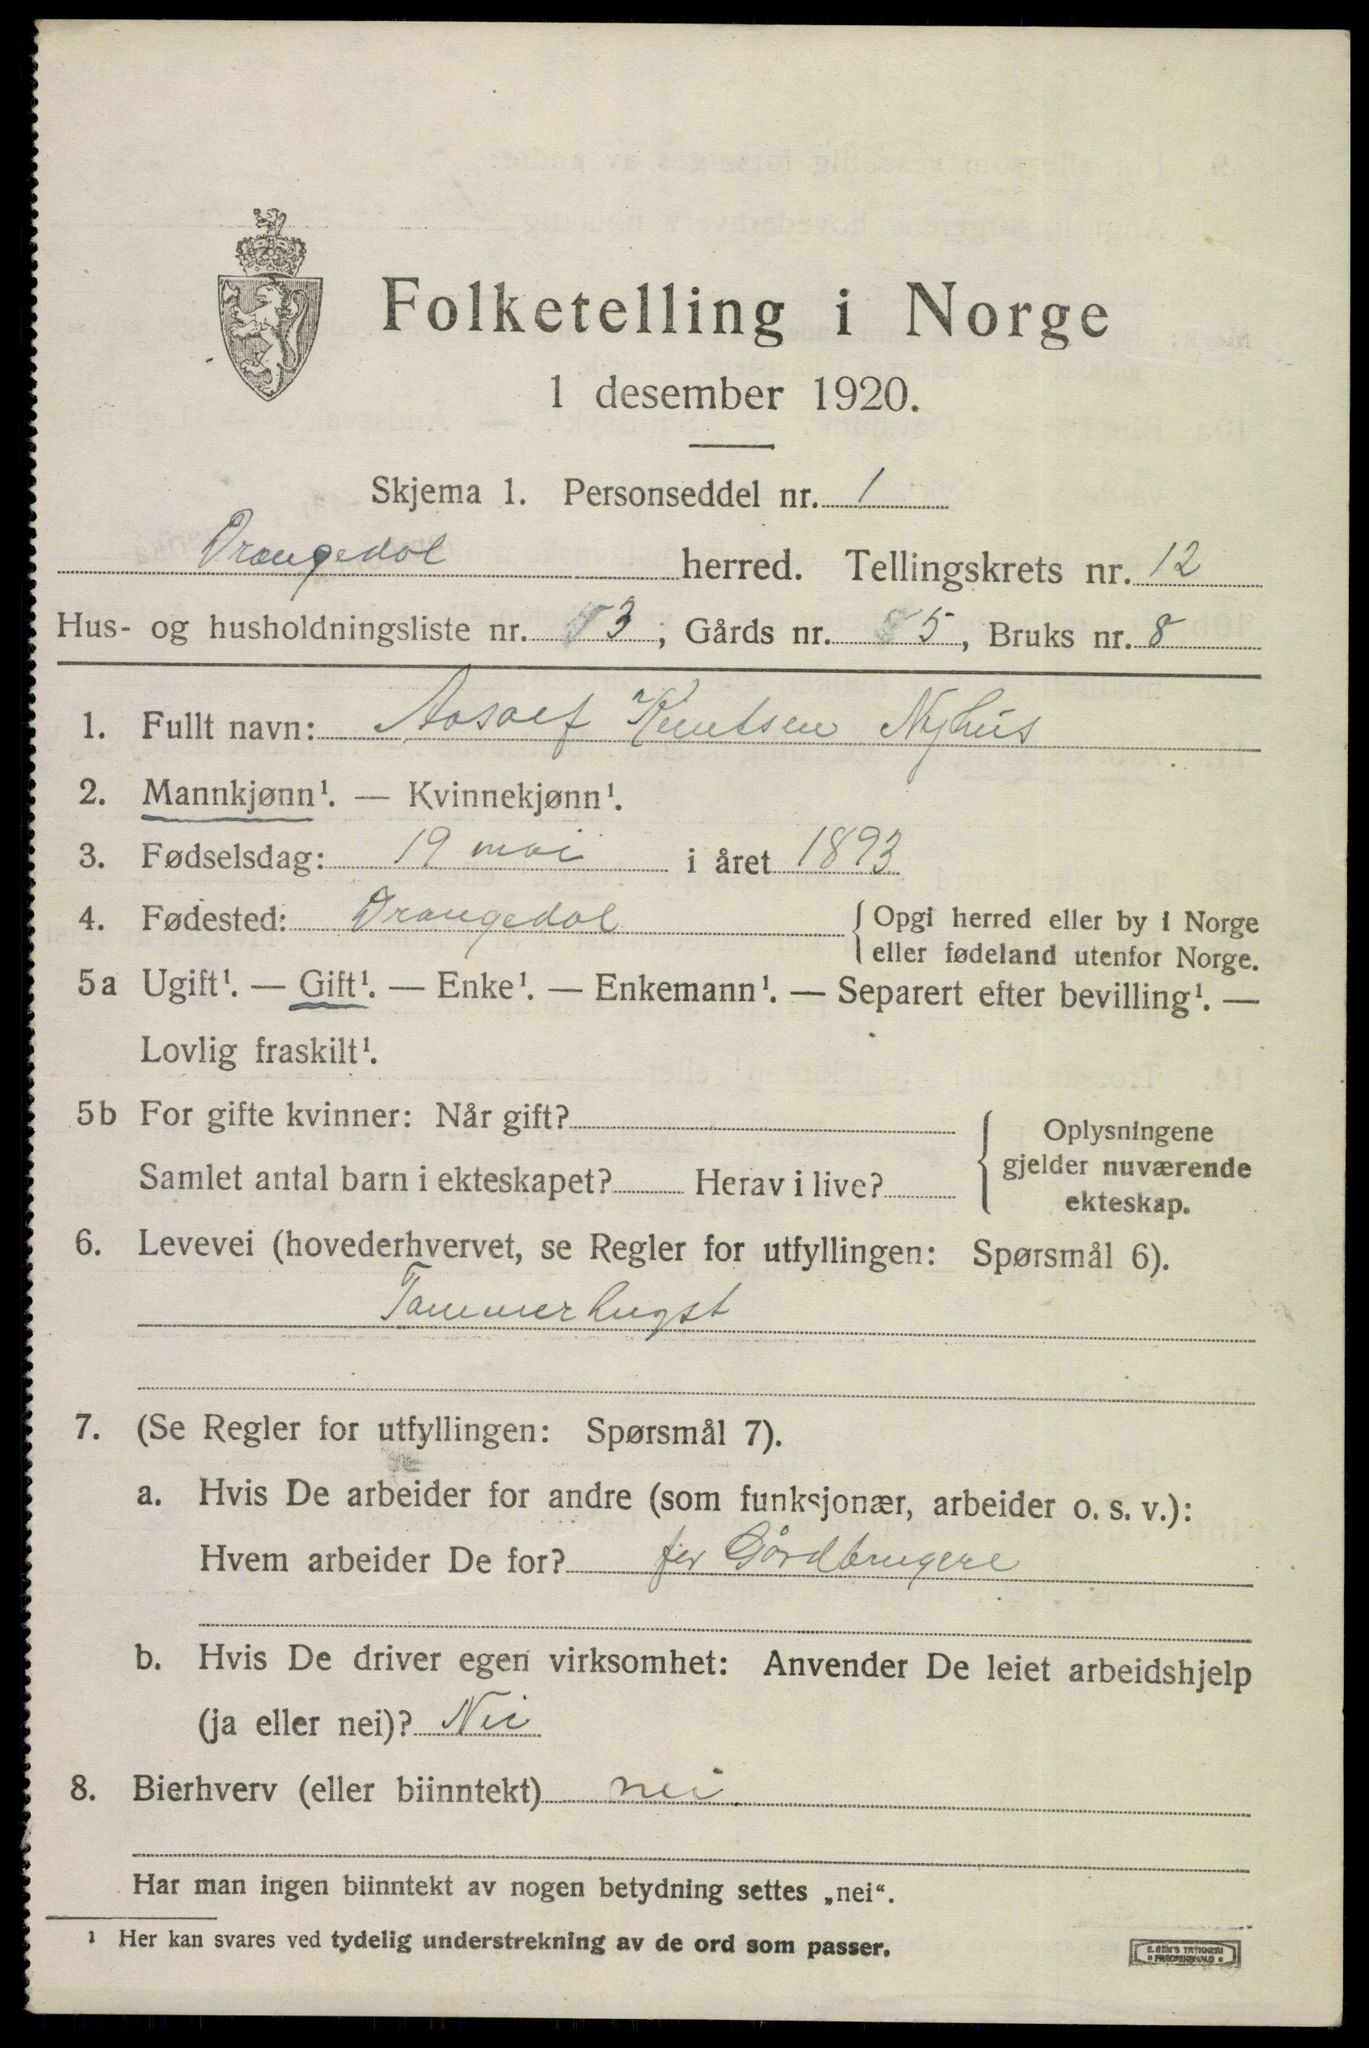 Folketelling i Norge
1 desember 1920.
Skjema 1. Personseddel nr. 1
Drangedal herred. Tellingskrets nr. 12
Hus- og husholdningsliste nr. 73, Gårds nr. 85, Bruks nr. 8
1. Fullt navn: Knutsen Nyhus
2. Mannkjønn¹. — Kvinnekjønn¹.
3. Fødselsdag: 19 mai i året 1893
4. Fødested: Drangedal { Opgi herred eller by i Norge
eller fødeland utenfor Norge.
5a Ugift¹. — Gift¹. — Enke¹. — Enkemann¹. — Separert efter bevilling¹. —
Lovlig fraskilt¹.
5b For gifte kvinner: Når gift?
Samlet antal barn i ekteskapet? Herav i live?
{ Oplysningene
gjelder nuværende
ekteskap.
6. Levevei (hovederhvervet, se Regler for utfyllingen: Spørsmål 6).
Tømmerhugst
7. (Se Regler for utfyllingen: Spørsmål 7).
a. Hvis De arbeider for andre (som funksjonær, arbeider o. s. v.):
Hvem arbeider De for? for Gårdbrugere
b. Hvis De driver egen virksomhet: Anvender De leiet arbeidshjelp
(ja eller nei)? Nei
8. Bierhverv (eller biinntekt) nei
Har man ingen biinntekt av nogen betydning settes „nei“.
¹ Her kan svares ved tydelig understrekning av de ord som passer.